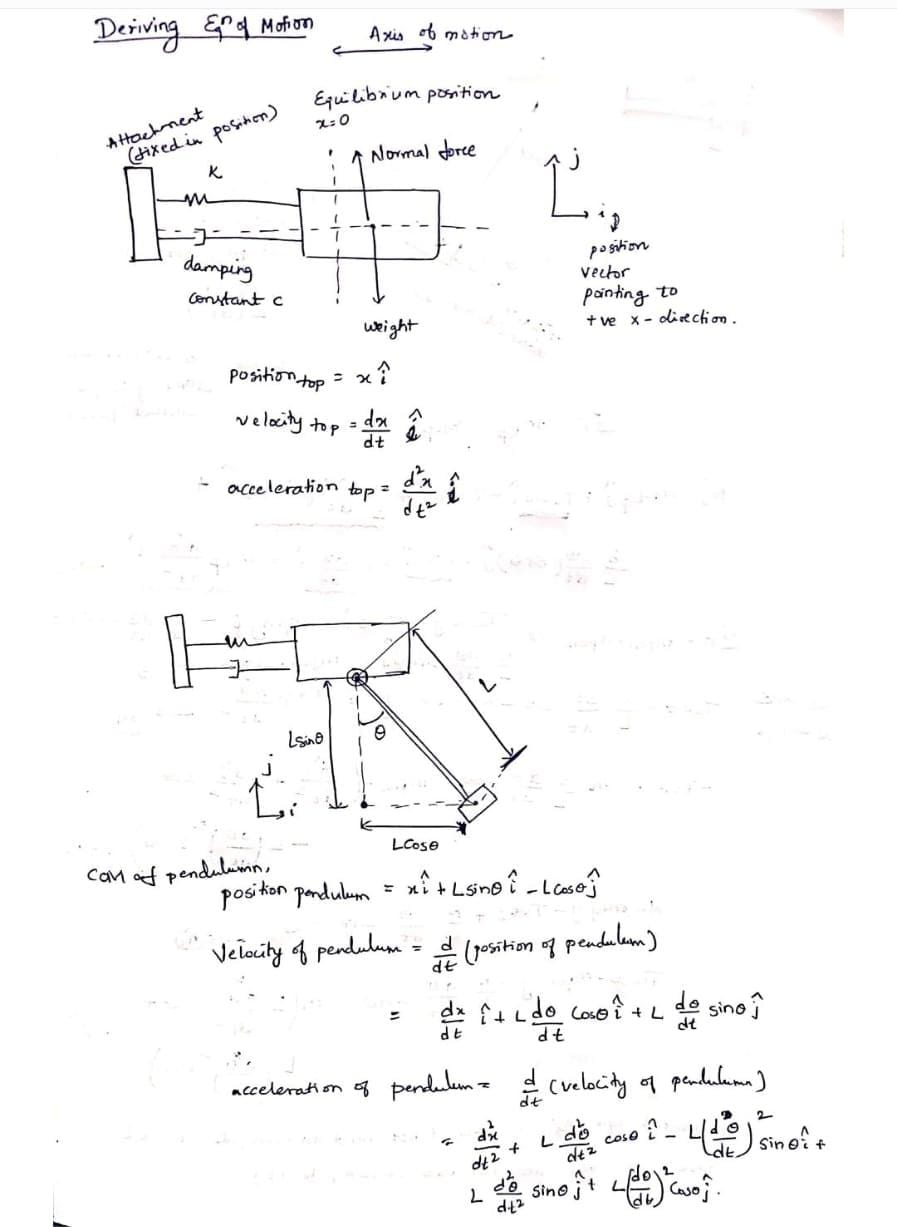 Deriving Eqn of Motion
Axis of motion
Equilibrium position
x=0
Attachment
(fixed in position)
Normal force
K
j
i
damping
constant c
weight
position
vector
pointing to
+ve x-direction.
position top = x î
velocity top = dx/dt î
acceleration top = d²x/dt² î
L
Lsinθ
θ
j
i
Lcosθ
COM of pendulumn,
position pendulum = xî + Lsinθ î - Lcosθ ĵ
Velocity of pendulum = d/dt (position of pendulum)
= dx/dt î + L dθ/dt cosθ î + L dθ/dt sinθ ĵ
acceleration of pendulum = d/dt (velocity of pendulumn)
= d²x/dt² + L d²θ/dt² cosθ î - L(dθ/dt)² sinθ î +
L d²θ/dt² sinθ ĵ + L(dθ/dt)² cosθ ĵ.